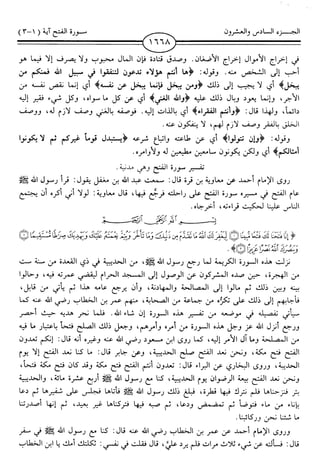 الجـزء السادس والعشرون
١٦٦٨
سورة الفتح آية (١-٣)
في إخراج الأموال إخراج الأضغان. وصدق قتادة فإن المال محبوب ولا يصرف إلا فيما هو
أحب إلى الشخص منه. وقوله: ﴿ها أنتم هؤلاء تدعون لتنفقوا في سبيل الله فمنكم من
يبخل﴾ أي لا يجيب إلى ذلك ﴿ومن يبخل فإنما يبخل عن نفسه﴾ أي إنما نقص نفسه من
الأجر، وإنما يعود وبال ذلك عليه ﴿والله الغني﴾ أي عن كل ما سواه، وكل شيء فقير إليه
دائماً، ولهذا قال: ﴿وأنتم الفقراء﴾ أي بالذات إليه. فوصفه بالغنى وصف لازم له، ووصف
الخلق بالفقر وصف لازم لهم، لا ينفكون عنه.
وقوله: ﴿وإن تتولوا﴾ أي عن طاعته واتباع شرعه ﴿يستبدل قوماً غيركم ثم لا يكونوا
أمثالكم﴾ أي ولكن يكونون سامعين مطيعين له ولأوامره.
تفسير سورة الفتح وهي مدنية.
روى الإمام أحمد عن معاوية بن قرة قال: سمعت عبد الله بن مغفل يقول: قرأ رسول الله ﷺ
عام الفتح في مسيره سورة الفتح على راحلته فرجّع فيها، قال معاوية: لولا أني أكره أن يجتمع
الناس علينا لحكيت قراءته، أخرجاه.
بِسْمِ اللَّهِ الرَّحْمَنِ الرَّحِيمِ
﴿إِنَّا فَتَحْنَا لَكَ فَتْحًا مُبِينًا ۝ لِيَغْفِرَ لَكَ اللَّهُ مَا تَقَدَّمَ مِنْ ذَنْبِكَ وَمَا تَأَخَّرَ وَيُتِمَّ نِعْمَتَهُ عَلَيْكَ وَيَهْدِيَكَ صِرَاطًا مُسْتَقِيمًا
۝ وَيَنْصُرَكَ اللَّهُ نَصْرًا عَزِيزًا ۝﴾
نزلت هذه السورة الكريمة لما رجع رسول الله ﷺ، من الحديبية في ذي القعدة من سنة ست
من الهجرة، حين صده المشركون عن الوصول إلى المسجد الحرام ليقضي عمرته فيه، وحالوا
بينه وبين ذلك ثم مالوا إلى المصالحة والمهادنة، وأن يرجع عامه هذا ثم يأتي من قابل،
فأجابهم إلى ذلك على تكرُّه من جماعة من الصحابة، منهم عمر بن الخطاب رضي الله عنه كما
سيأتي تفصيله في موضعه من تفسير هذه السورة إن شاء الله. فلما نحر هديه حيث أحصر
ورجع أنزل الله عز وجل هذه السورة من أمره وأمرهم، وجعل ذلك الصلح فتحاً باعتبار ما فيه
من المصلحة وما آل الأمر إليه، كما روى ابن مسعود رضي الله عنه وغيره أنه قال: إنكم تعدون
الفتح فتح مكة، ونحن نعد الفتح صلح الحديبية، وعن جابر قال: ما كنا نعد الفتح إلا يوم
الحديبية. وروى البخاري عن البراء قال: تعدون أنتم الفتح فتح مكة وقد كان فتح مكة فتحاً،
ونحن نعد الفتح بيعة الرضوان يوم الحديبية، كنا مع رسول الله ﷺ أربع عشرة مائة، والحديبية
بئر فنزحناها فلم نترك فيها قطرة، فبلغ ذلك رسول الله ﷺ فأتاها فجلس على شفيرها ثم دعا
بإناء من ماء فتوضأ ثم تمضمض ودعا، ثم صبه فيها فتركناها غير بعيد، ثم إنها أصدرتنا
ما شئنا نحن وركائبنا.
وروى الإمام أحمد عن عمر بن الخطاب رضي الله عنه قال: كنا مع رسول الله ﷺ في سفر
قال: فسألته عن شيء ثلاث مرات فلم يرد عليّ، قال فقلت في نفسي: ثكلتك أمك يا ابن الخطاب